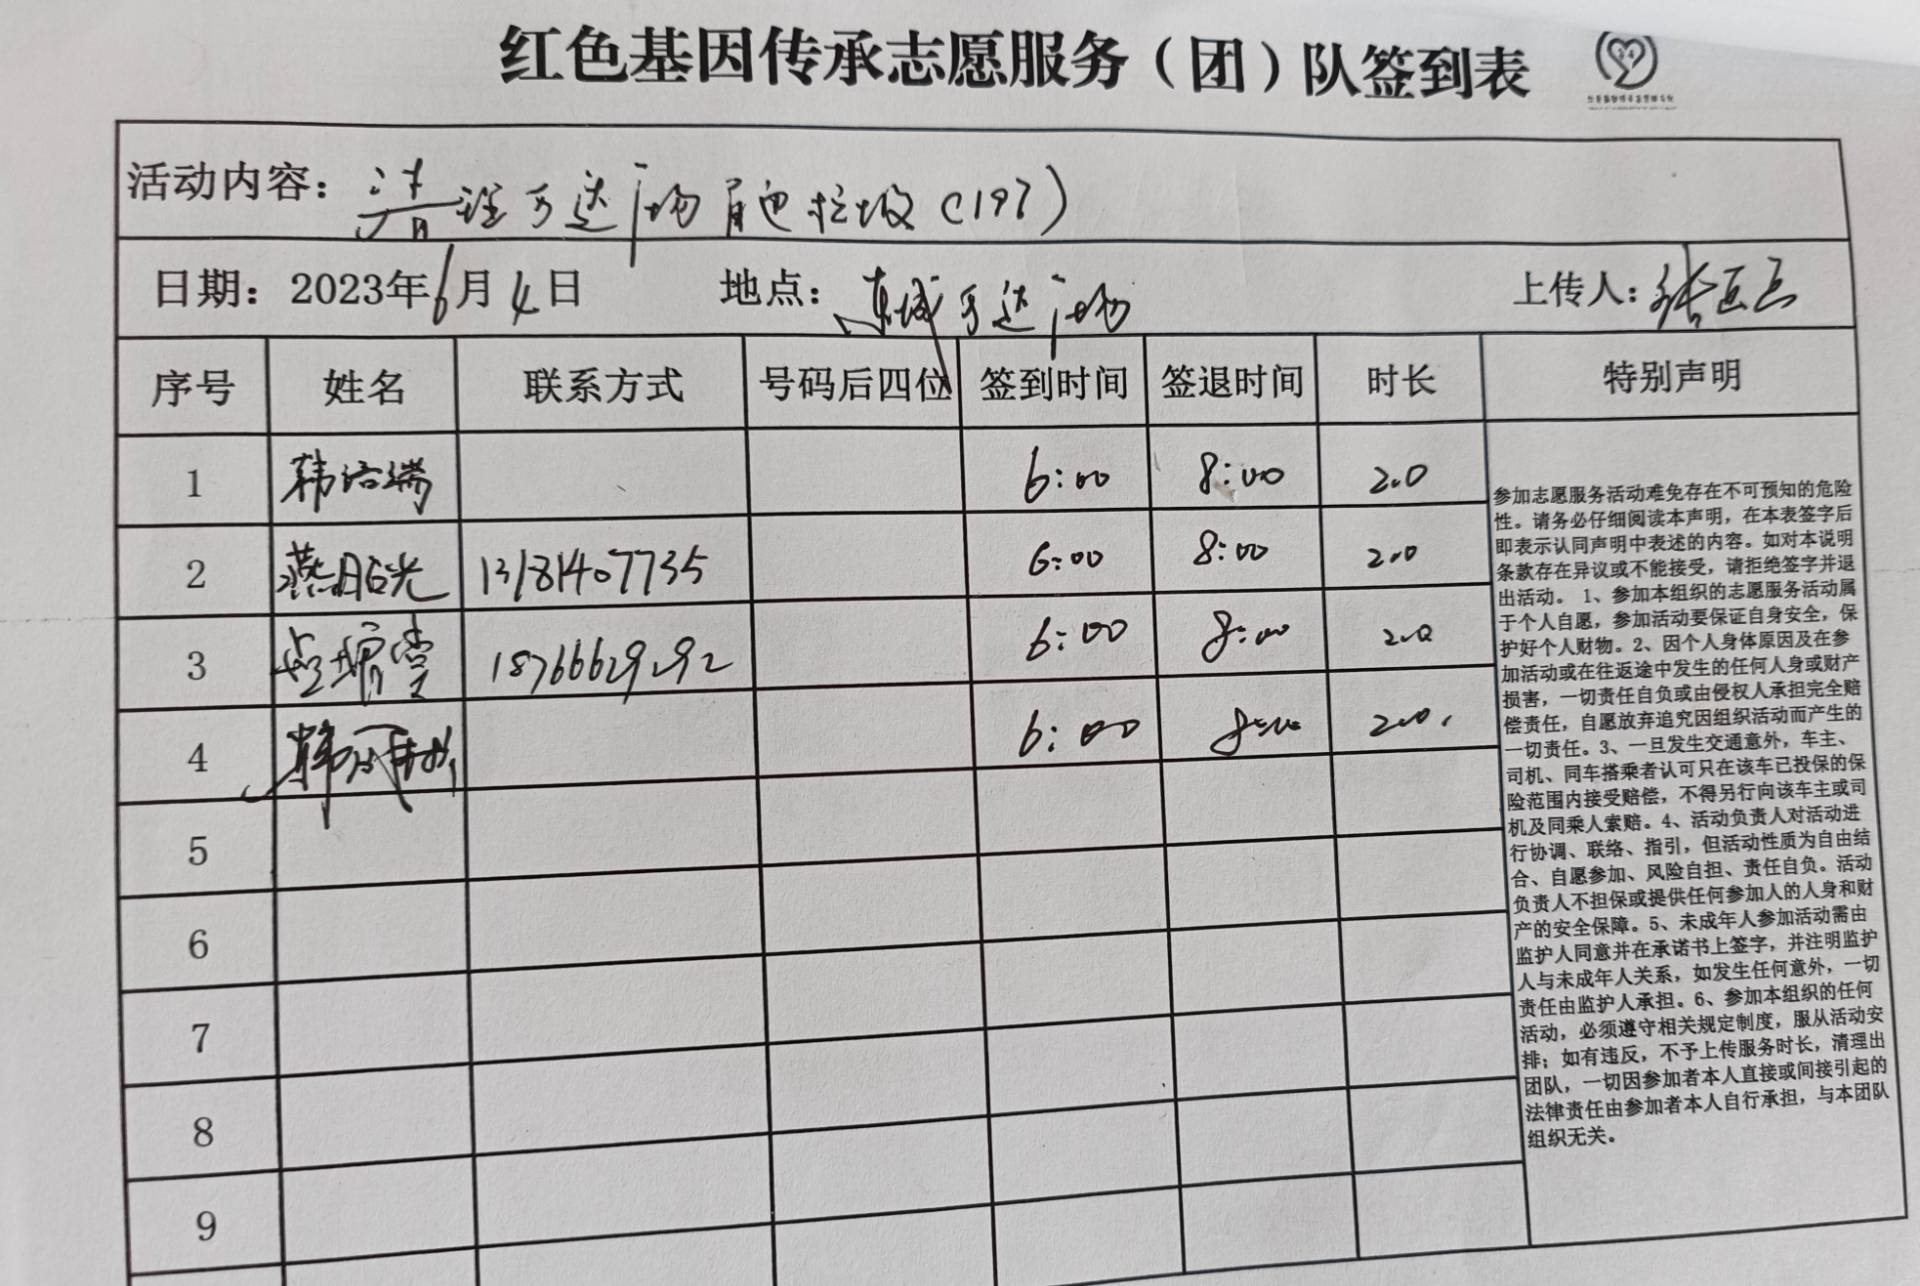 红色基因传承志愿服务（团）队签到表
活动内容：清理万达广场白色垃圾（197）
日期：2023年6月4日 地点：东城万达广场 上传人：张
序号 姓名 联系方式 号码后四位 签到时间 签退时间 时长 特别声明
1 韩 端 6:00 8:00 2.0
2 燕明光 13181407735 6:00 8:00 2.0
3 18766629292 6:00 8:00 2.0
4 韩 6:00 8:00 2.0
5
6
7
8
9
参加志愿服务活动难免存在不可预知的危险
性。请务必仔细阅读本声明，在本表签字后
即表示认同声明中表述的内容。如对本说明
条款存在异议或不能接受，请拒绝签字并退
出活动。 1、参加本组织的志愿服务活动属
于个人自愿，参加活动要保证自身安全，保
护好个人财物。2、因个人身体原因及在参
加活动或在往返途中发生的任何人身或财产
损害，一切责任自负或由侵权人承担完全赔
偿责任，自愿放弃追究因组织活动而产生的
一切责任。3、一旦发生交通意外，车主、
司机、同车搭乘者认可只在该车已投保的保
险范围内接受赔偿，不得另行向该车主或司
机及同乘人索赔。4、活动负责人对活动进
行协调、联络、指引，但活动性质为自由结
合、自愿参加、风险自担、责任自负。活动
负责人不担保或提供任何参加人的人身和财
产的安全保障。5、未成年人参加活动需由
监护人同意并在承诺书上签字，并注明监护
人与未成年人关系，如发生任何意外，一切
责任由监护人承担。6、参加本组织的任何
活动，必须遵守相关规定制度，服从活动安
排；如有违反，不予上传服务时长，清理出
团队，一切因参加者本人直接或间接引起的
法律责任由参加者本人自行承担，与本团队
组织无关。